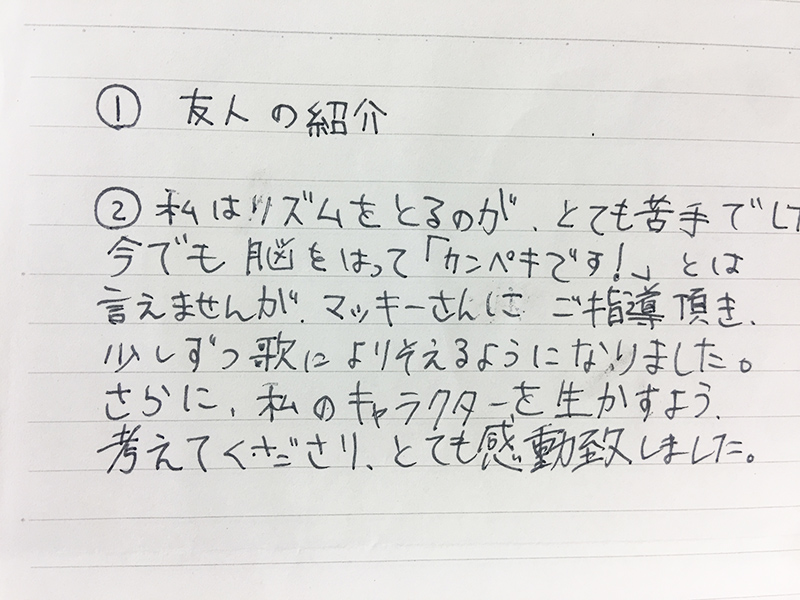 ① 友人の紹介
② 私はリズムをとるのが、とても苦手でした
今でも脳をはって「カンペキです!」とは
言えませんが、マッキーさんに ご指導頂き、
少しずつ歌によりそえるようになりました。
さらに、私のキャラクターを生かすよう、
考えてくださり、とても感動致しました。